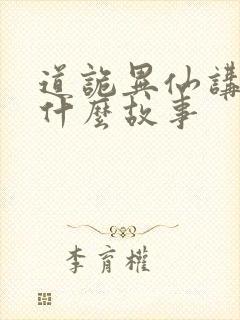 道詭異仙講
什麼故事
李育權